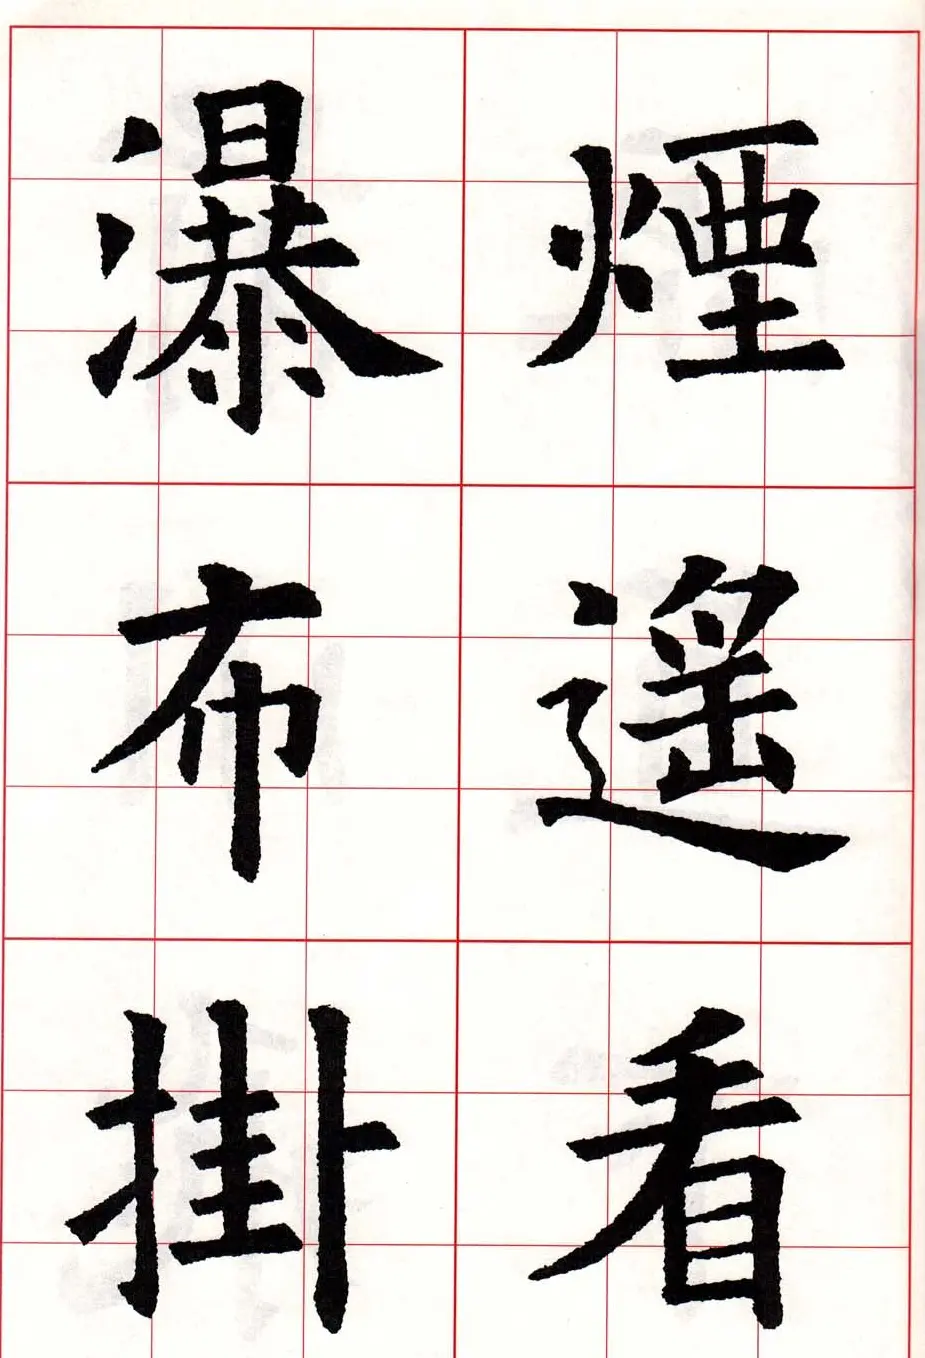 煙遥看
瀑布掛